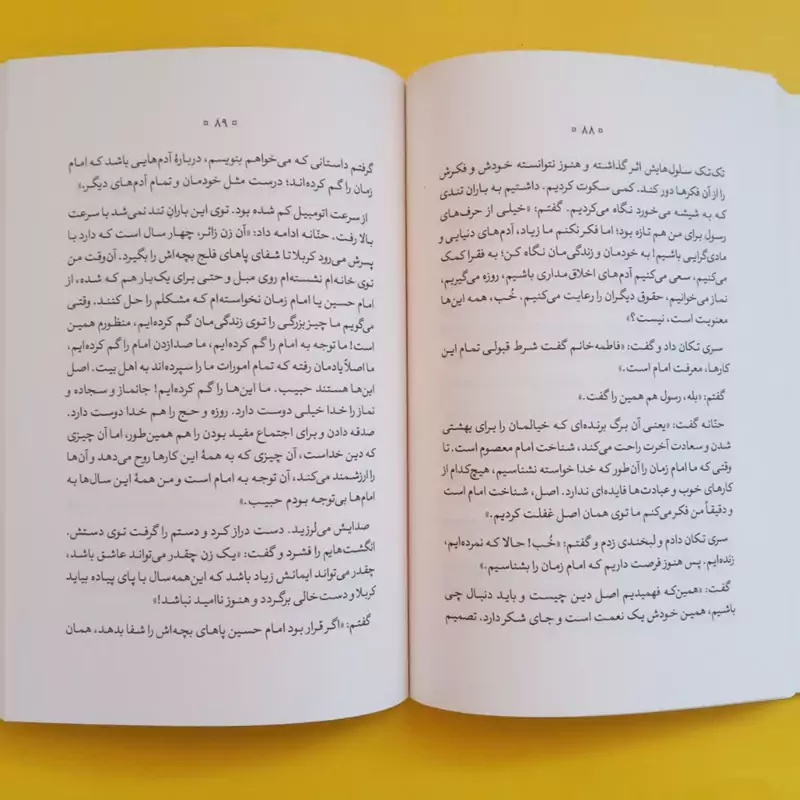 ۸۸
تک‌تک سلول‌هایش اثر گذاشته و هنوز نتوانسته خودش و فکرش
را از آن فکرها دور کند. کمی سکوت کردیم. داشتیم به باران تندی
که به شیشه می‌خورد نگاه می‌کردیم. گفتم: «خیلی از حرف‌های
رسول برای من هم تازه بود؛ اما فکر نکنم ما زیاد، آدم‌های دنیایی و
مادی‌گرایی باشیم! به خودمان و زندگی‌مان نگاه کن؛ به فقرا کمک
می‌کنیم، سعی می‌کنیم آدم‌های اخلاق‌مداری باشیم، روزه می‌گیریم،
نماز می‌خوانیم، حقوق دیگران را رعایت می‌کنیم. خُب، همه این‌ها
معنویت است، نیست؟»
سری تکان داد و گفت: «فاطمه‌خانم گفت شرط قبولی تمام این
کارها، معرفت امام است.»
گفتم: «بله، رسول هم همین را گفت.»
حنّانه گفت: «یعنی آن برگ برنده‌ای که خیالمان را برای بهشتی
شدن و سعادت آخرت راحت می‌کند، شناخت امام معصوم است. تا
وقتی که ما امام زمان را آن‌طور که خدا خواسته نشناسیم، هیچ‌کدام از
کارهای خوب و عبادت‌ها فایده‌ای ندارد. اصل، شناخت امام است
و دقیقاً من فکر می‌کنم ما توی همان اصل غفلت کردیم.»
سری تکان دادم و لبخندی زدم و گفتم: «خُب! حالا که نمرده‌ایم،
زنده‌ایم. پس هنوز فرصت داریم که امام زمان را بشناسیم.»
گفت: «همین‌که فهمیدیم اصل دین چیست و باید دنبال چی
باشیم، همین خودش یک نعمت است و جای شکر دارد. تصمیم
۸۹
گرفتم داستانی که می‌خواهم بنویسم، دربارهٔ آدم‌هایی باشد که امام
زمان را گم کرده‌اند؛ درست مثل خودمان و تمام آدم‌های دیگر.»
از سرعت اتومبیل کم شده بود. توی این بارانِ تند نمی‌شد با سرعت
بالا رفت. حنّانه ادامه داد: «آن زن زائر، چهار سال است که دارد با
پسرش می‌رود کربلا تا شفای پاهای فلج بچه‌اش را بگیرد. آن‌وقت من
توی خانه‌ام نشسته‌ام روی مبل و حتی برای یک‌بار هم که شده، از
امام حسین یا امام زمان نخواسته‌ام که مشکلم را حل کنند. وقتی
می‌گویم ما چیز بزرگی را توی زندگی‌مان گم کرده‌ایم، منظورم همین
است! ما توجه به امام را گم کرده‌ایم، ما صدازدن امام را گم کرده‌ایم،
ما اصلاً یادمان رفته که تمام امورات ما را سپرده‌اند به اهل بیت. اصل
این‌ها هستند حبیب. ما این‌ها را گم کرده‌ایم! جانماز و سجاده و
نماز را خدا خیلی دوست دارد. روزه و حج را هم خدا دوست دارد.
صدقه دادن و برای اجتماع مفید بودن را هم همین‌طور، اما آن چیزی
که دین خداست، آن چیزی که به همهٔ این کارها روح می‌دهد و آن‌ها
را ارزشمند می‌کند، آن توجه به امام است و من همهٔ این سال‌ها به
امام‌ها بی‌توجه بودم حبیب.»
صدایش می‌لرزید. دست دراز کرد و دستم را گرفت توی دستش.
انگشت‌هایم را فشرد و گفت: «یک زن چقدر می‌تواند عاشق باشد،
چقدر می‌تواند ایمانش زیاد باشد که این‌همه‌سال با پای پیاده بیاید
کربلا و دست‌خالی برگردد و هنوز ناامید نباشد!»
گفتم: «اگر قرار بود امام حسین پاهای بچه‌اش را شفا بدهد، همان